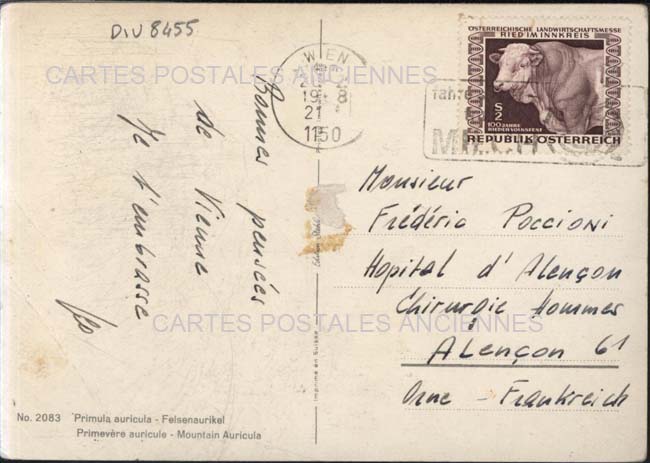 DIV 8455
ÖSTERREICHISCHE LANDWIRTSCHAFTSMESSE
RIED IM INNKREIS
S
2
100 JAHRE
RIEDER VOLKSFESTE
REPUBLIK ÖSTERREICH
WIEN
19-8
21
1150
CARTES POSTALES ANCIENNES
Bonnes pensées
de Vienne
Je t'embrasse
Monsieur
Frédéric Poccioni
Hopital d'Alençon
Chirurgie Hommes
Alençon 61
Orne - Frankreich
CARTES POSTALES ANCIENNES
Imprimé en Suisse
No. 2083 Primula auricula - Felsenaurikel
Primevère auricule - Mountain Auricula